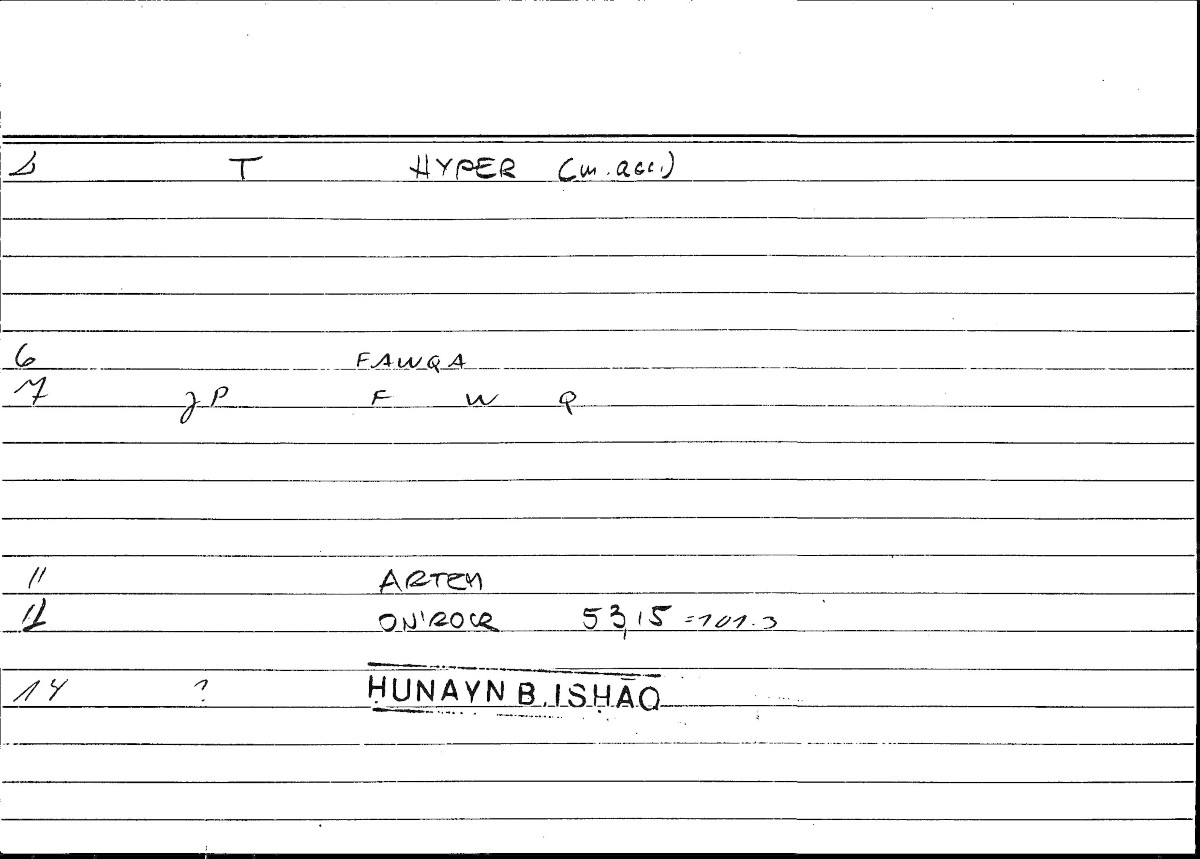 1 T HYPER (m. acc.)
6 FAWQA
7 JP F W Q
11 ARTEM
12 ONIROCR 53,15 = 101.3
14 ? ḤUNAYN B. ISḤĀQ